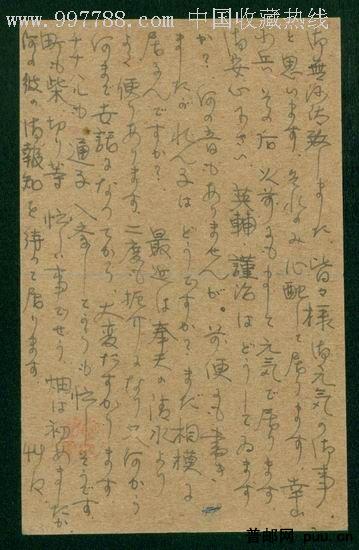 www.997788.com 中国收藏热线
御無沙汰致しました 皆々様 御元気の御事
と思います、それのみ心配して居ります、幸山
お兄 その后 以前にもまして元気で居ります
御安心下さい 英輔 謹治はどうしてゐます
か? 何の音もありませんが。前便にも書き
ましたがれん子はどうですか?まだ相模に
居るんですか? 最近は奉天の清水より
よく便りあります、二度も振介になり
何まで世話になってから、大変たすかります
も 通子 入 しても 忙しそうです
町も柴切り等 忙しい事でせう、畑は初めましたか
何の彼の御報知を待って居ります 艸々
普邮网 puu.cn